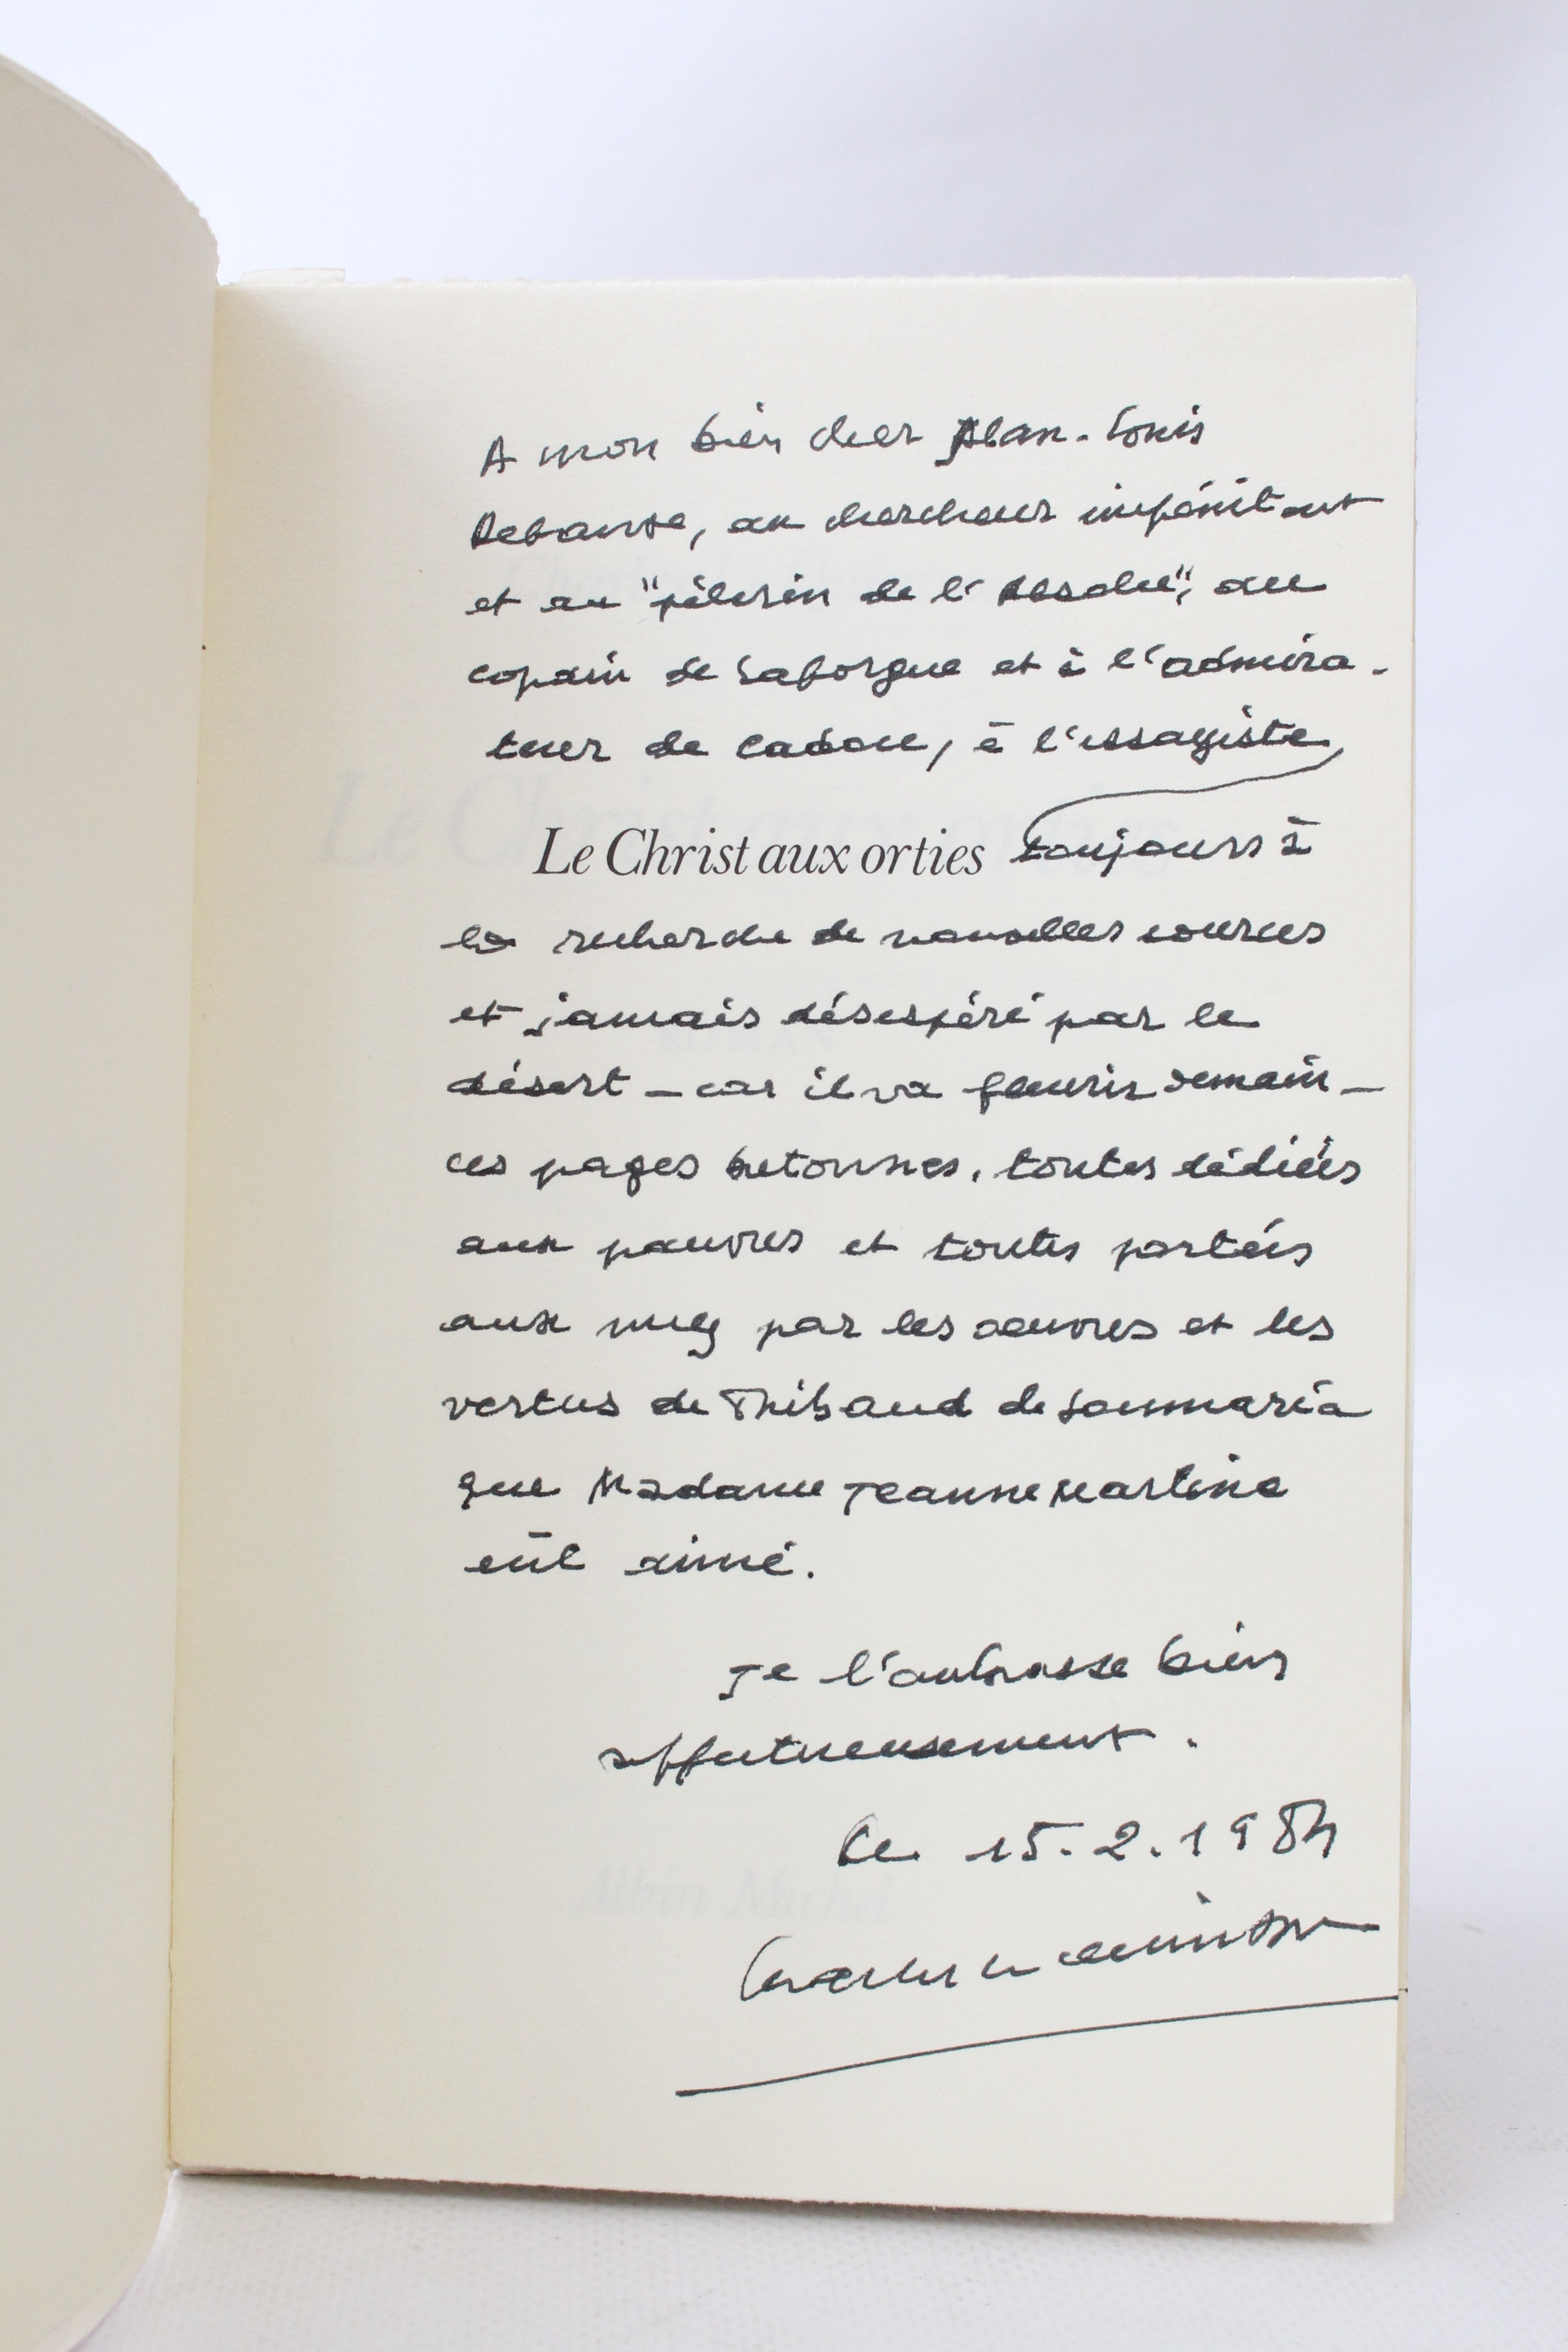 A mon bien cher Jean-Louis
Debauve, au chercheur impénitent
et au "pèlerin de l'Absolu", au
copain de Laforgue et à l'admira-
teur de Cadou, à l'essayiste
Le Christ aux orties toujours à
la recherche de nouvelles sources
et jamais désespéré par le
désert – car il va fleurir demain –
ces pages bretonnes, toutes dédiées
aux pauvres et toutes portées
aux nues par les oeuvres et les
vertus de Thibaud de
que Madame Jeanne Martine
eût aimé.
Je l'embrasse bien
affectueusement.
Le 15.2.1984
Charles Le Quintrec
Albin Michel